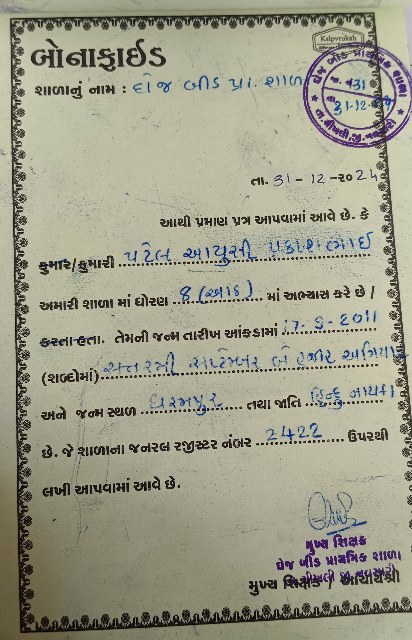 Kalpvruksh
બોનાફાઈડ
શાળાનું નામ : ઘેજ બીડ પ્રા. શાળા
ઘેજ બીડ પ્રાથમિક શાળા
31-12-24
તા. 31-12-2024
આથી પ્રમાણ પત્ર આપવામાં આવે છે. કે
કુમાર/કુમારી પટેલ આયુસી પ્રકાશભાઈ
અમારી શાળા માં ધોરણ 8 (આઠ) માં અભ્યાસ કરે છે /
કરતા હતા. તેમની જન્મ તારીખ આંકડામાં 17-9-2011
(શબ્દોમાં) સત્તરમી સપ્ટેમ્બર બે હજાર અગિયાર
અને જન્મ સ્થળ ધરમપુર તથા જાતિ હિન્દુ નાયકા
છે. જે શાળાના જનરલ રજીસ્ટર નંબર 2422 ઉપરથી
લખી આપવામાં આવે છે.
મુખ્ય શિક્ષક
ઘેજ બીડ પ્રાથમિક શાળા
મુખ્ય શિક્ષક / આચાર્યશ્રી